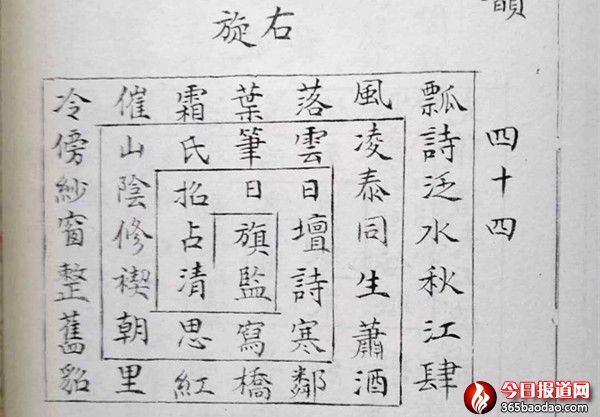 四十四
右旋
瓢詩泛水秋江肆
風凌泰同生蕭酒
落雲日壇詩寒鄰
葉筆日旗監寫橋
霜氏招占清思紅
催山陰修禊朝里
冷傍紗窗整舊貂
今日报道网
365baodao.com